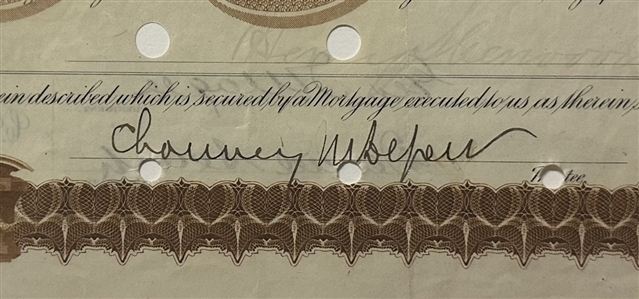 ein described which is secured by a Mortgage executed to us, as therein,
Chauncey M Depew
Trustee.